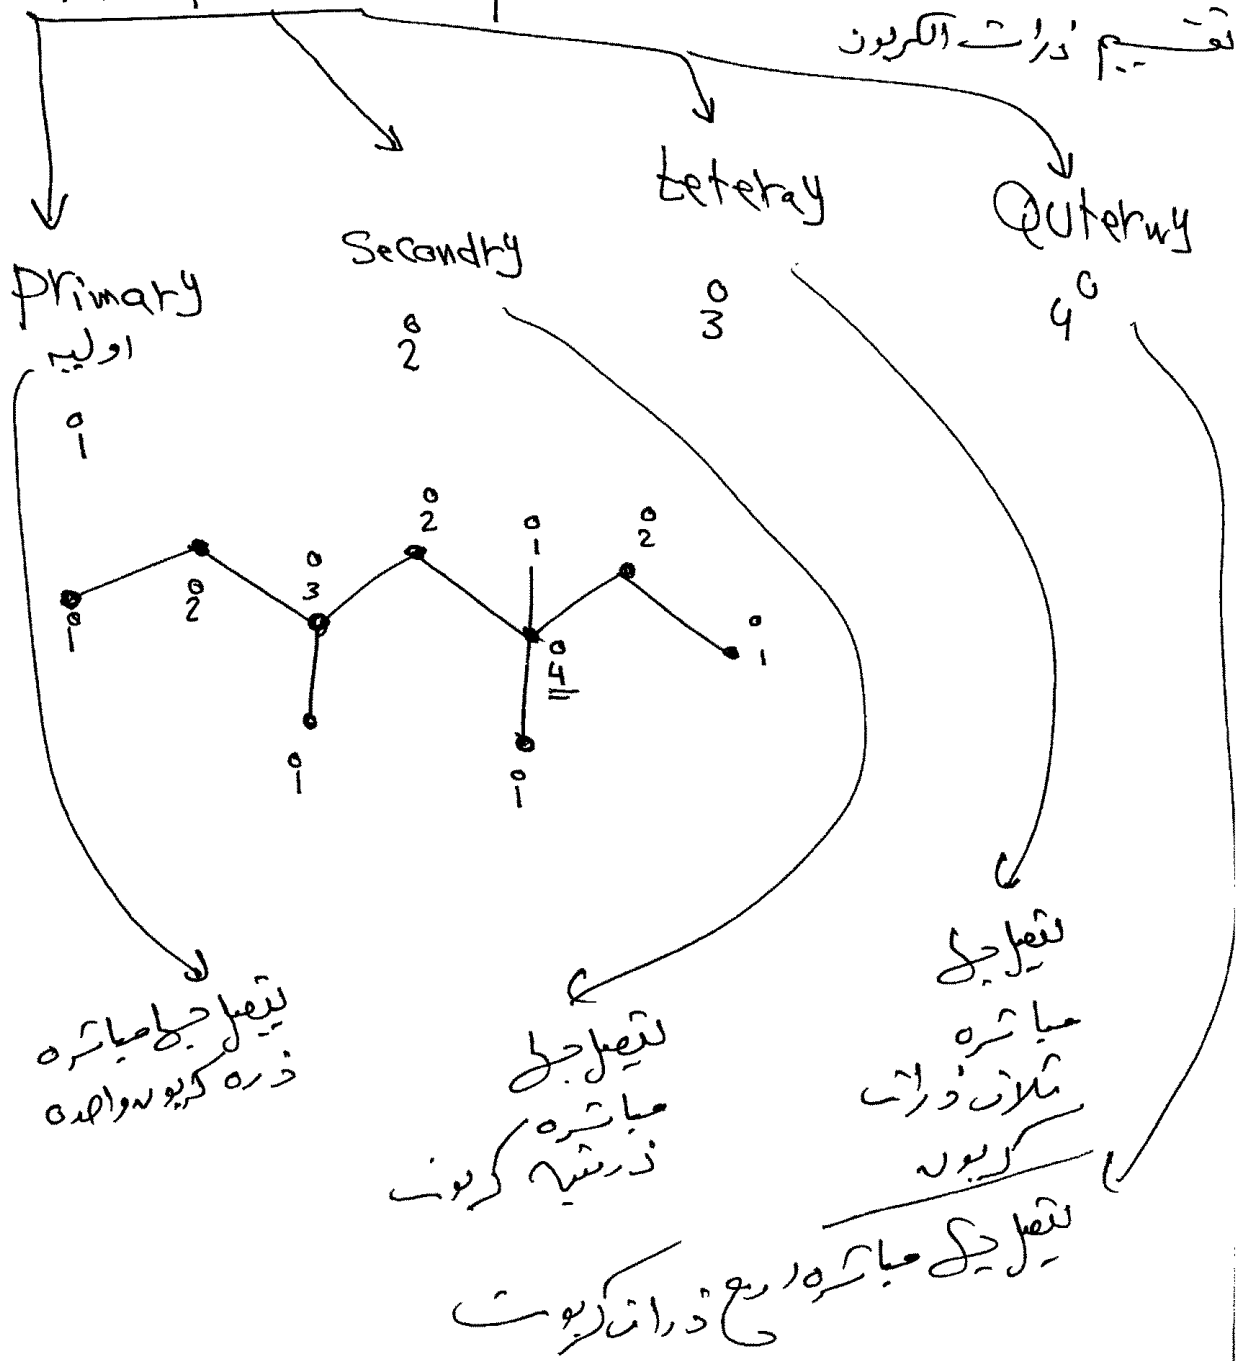 تقسيم ذرات الكربون
Primary
اوليه
1°
Secondry
2°
teteray
3°
Quterny
4°
2°
1°
2°
3°
2°
1°
1°
4°
1°
1°
1°
يتصل بها مباشره
ذره كربون واحده
تتصل بها
مباشره
ذرتيه كربون
تتصل بها
مباشره
ثلاث ذرات
كربون
تتصل بها مباشره اربع ذرات كربون